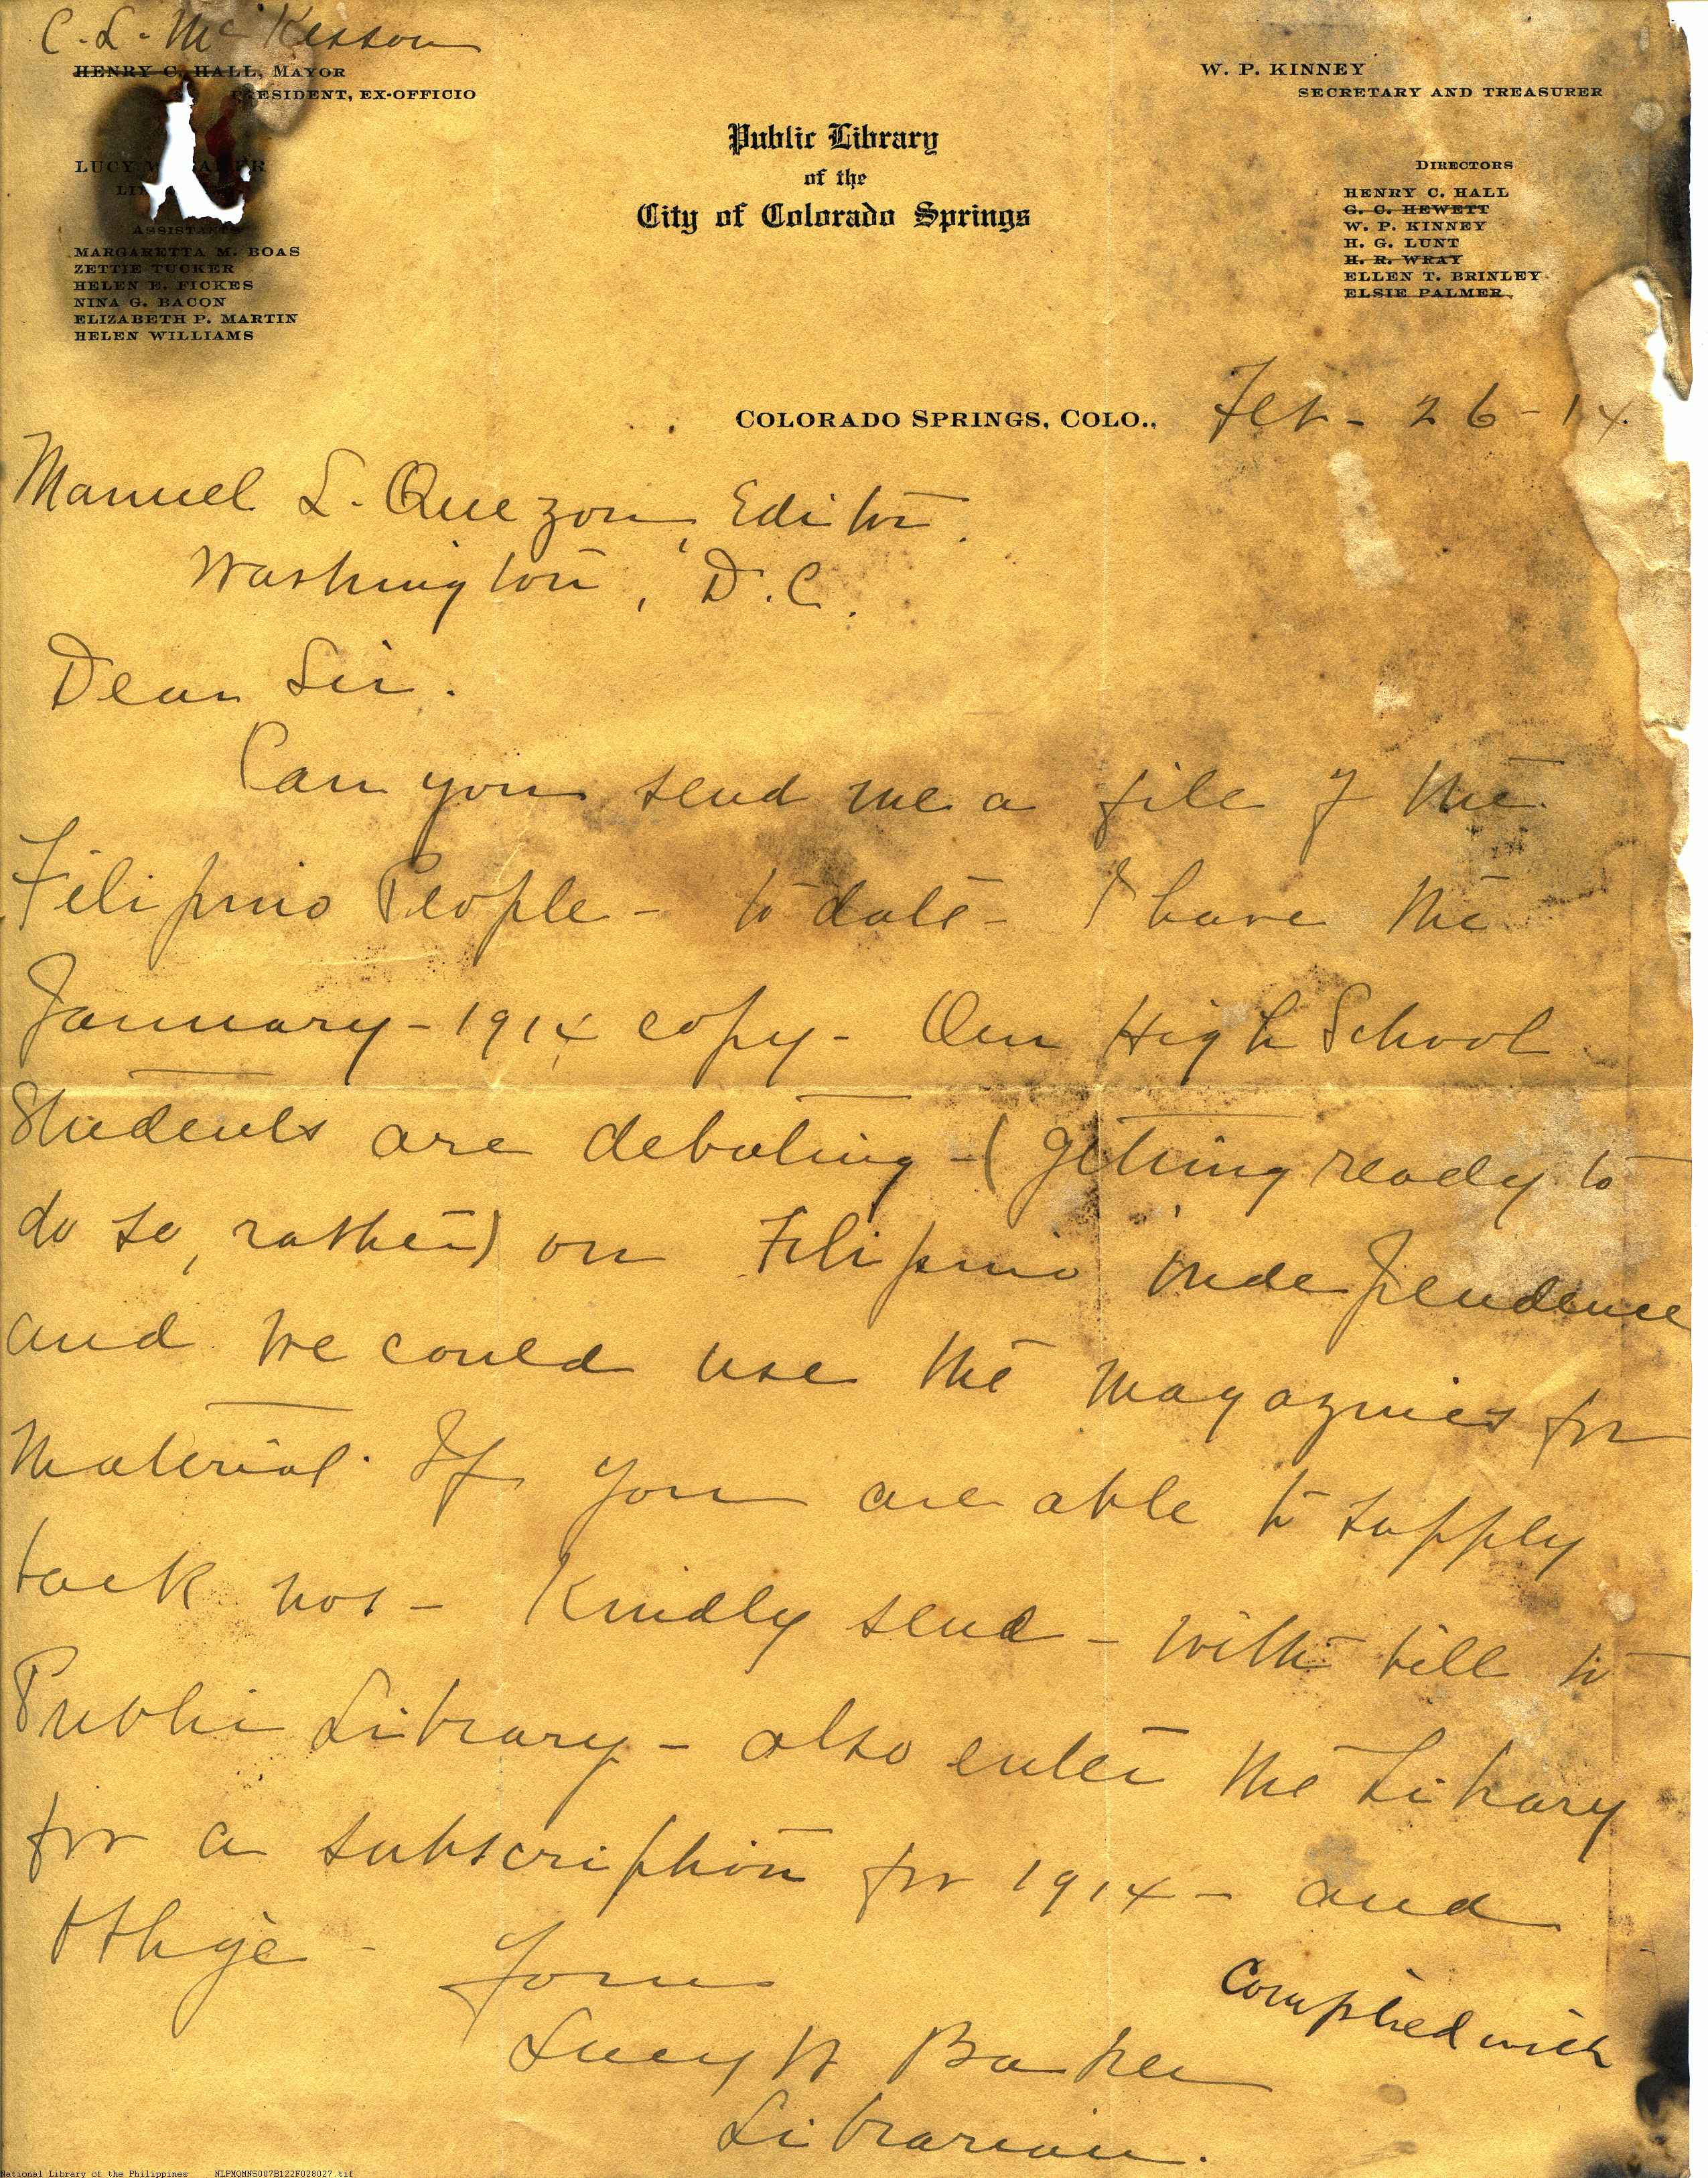 C. L. McKesson
HENRY C. HALL, MAYOR
PRESIDENT, EX-OFFICIO
W. P. KINNEY
SECRETARY AND TREASURER
LUCY
ASSISTANTS
MARGARETTA M. BOAS
ZETTIE TUCKER
HELEN E. FICKES
NINA G. BACON
ELIZABETH P. MARTIN
HELEN WILLIAMS
Public Library
of the
City of Colorado Springs
DIRECTORS
HENRY C. HALL
G. C. HEWETT
W. P. KINNEY
H. G. LUNT
H. R. WRAY
ELLEN T. BRINLEY
ELSIE PALMER
COLORADO SPRINGS, COLO., Feb - 26 - 14.
Manuel L. Quezon, Editor.
Washington, D.C.
Dear Sir.
Can you send me a file of the
Filipino People - to date - I have the
January - 1914 copy - Our High School
Students are debating - (getting ready to
do so, rather) on Filipino independence
and we could use the magazines for
material. If you are able to supply
back nos - Kindly send - with bill to
Public Library - also enter the Library
for a subscription for 1914 - and
oblige - Yours
Lucy W Baker
Librarian.
Complied with
National Library of the Philippines NLPMQMNS007B122F028027.tif